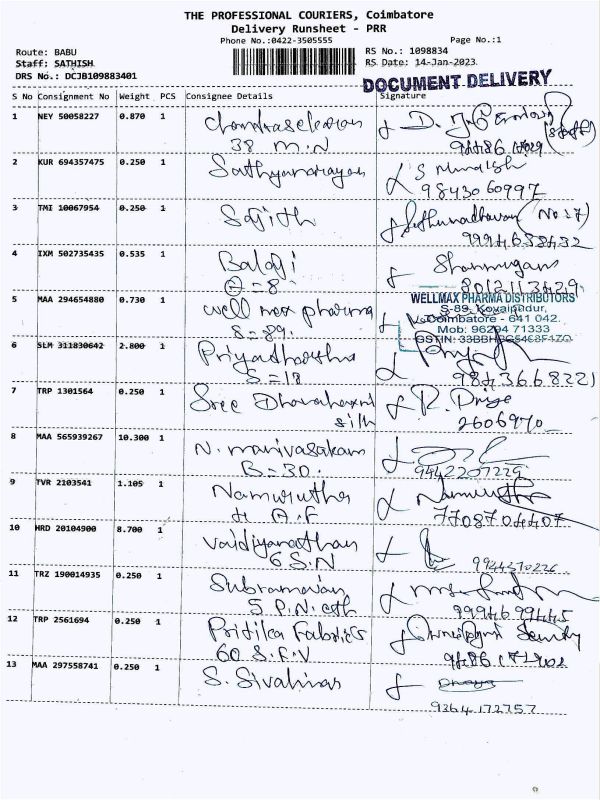 THE PROFESSIONAL COURIERS, Coimbatore
Delivery Runsheet - PRR
Phone No.:0422-3505555
Page No.:1
Route: BABU
RS No.: 1098834
Staff: SATHISH
RS Date: 14-Jan-2023
DRS No.: DCJB109883401
DOCUMENT DELIVERY
S No Consignment No Weight PCS Consignee Details Signature
1 NEY 50058227 0.870 1 Chandrasekaran
38 M.N
(staff)
2 KUR 694357475 0.250 1 Sathyanarayan
98430 60997
3 TMI 10067954 0.250 1 Sajith (No 27)
9994638432
4 IXM 502735435 0.535 1 Balaji Shanmugam
8012113429
5 MAA 294654880 0.730 1 well max pharma
S=89.
WELLMAX PHARMA DISTRIBUTORS
S-89, Kovaipudur,
Coimbatore - 641 042.
Mob: 96294 71333
6 SLM 311830642 2.800 1
S=18
9843668221
7 TRP 1301564 0.250 1 Sree
silk R. Priya
2606970
8 MAA 565939267 10.300 1 N. manivasakam
B=30.
9442207229
9 TVR 2103541 1.105 1 Namrutha
7708704407
10 HRD 20104900 8.700 1 Vaidiyanathan
6 S.N
11 TRZ 190014935 0.250 1
99946 99445
12 TRP 2561694 0.250 1 Pritika Fabrics
60 S.F.V
13 MAA 297558741 0.250 1 S.
9364172757